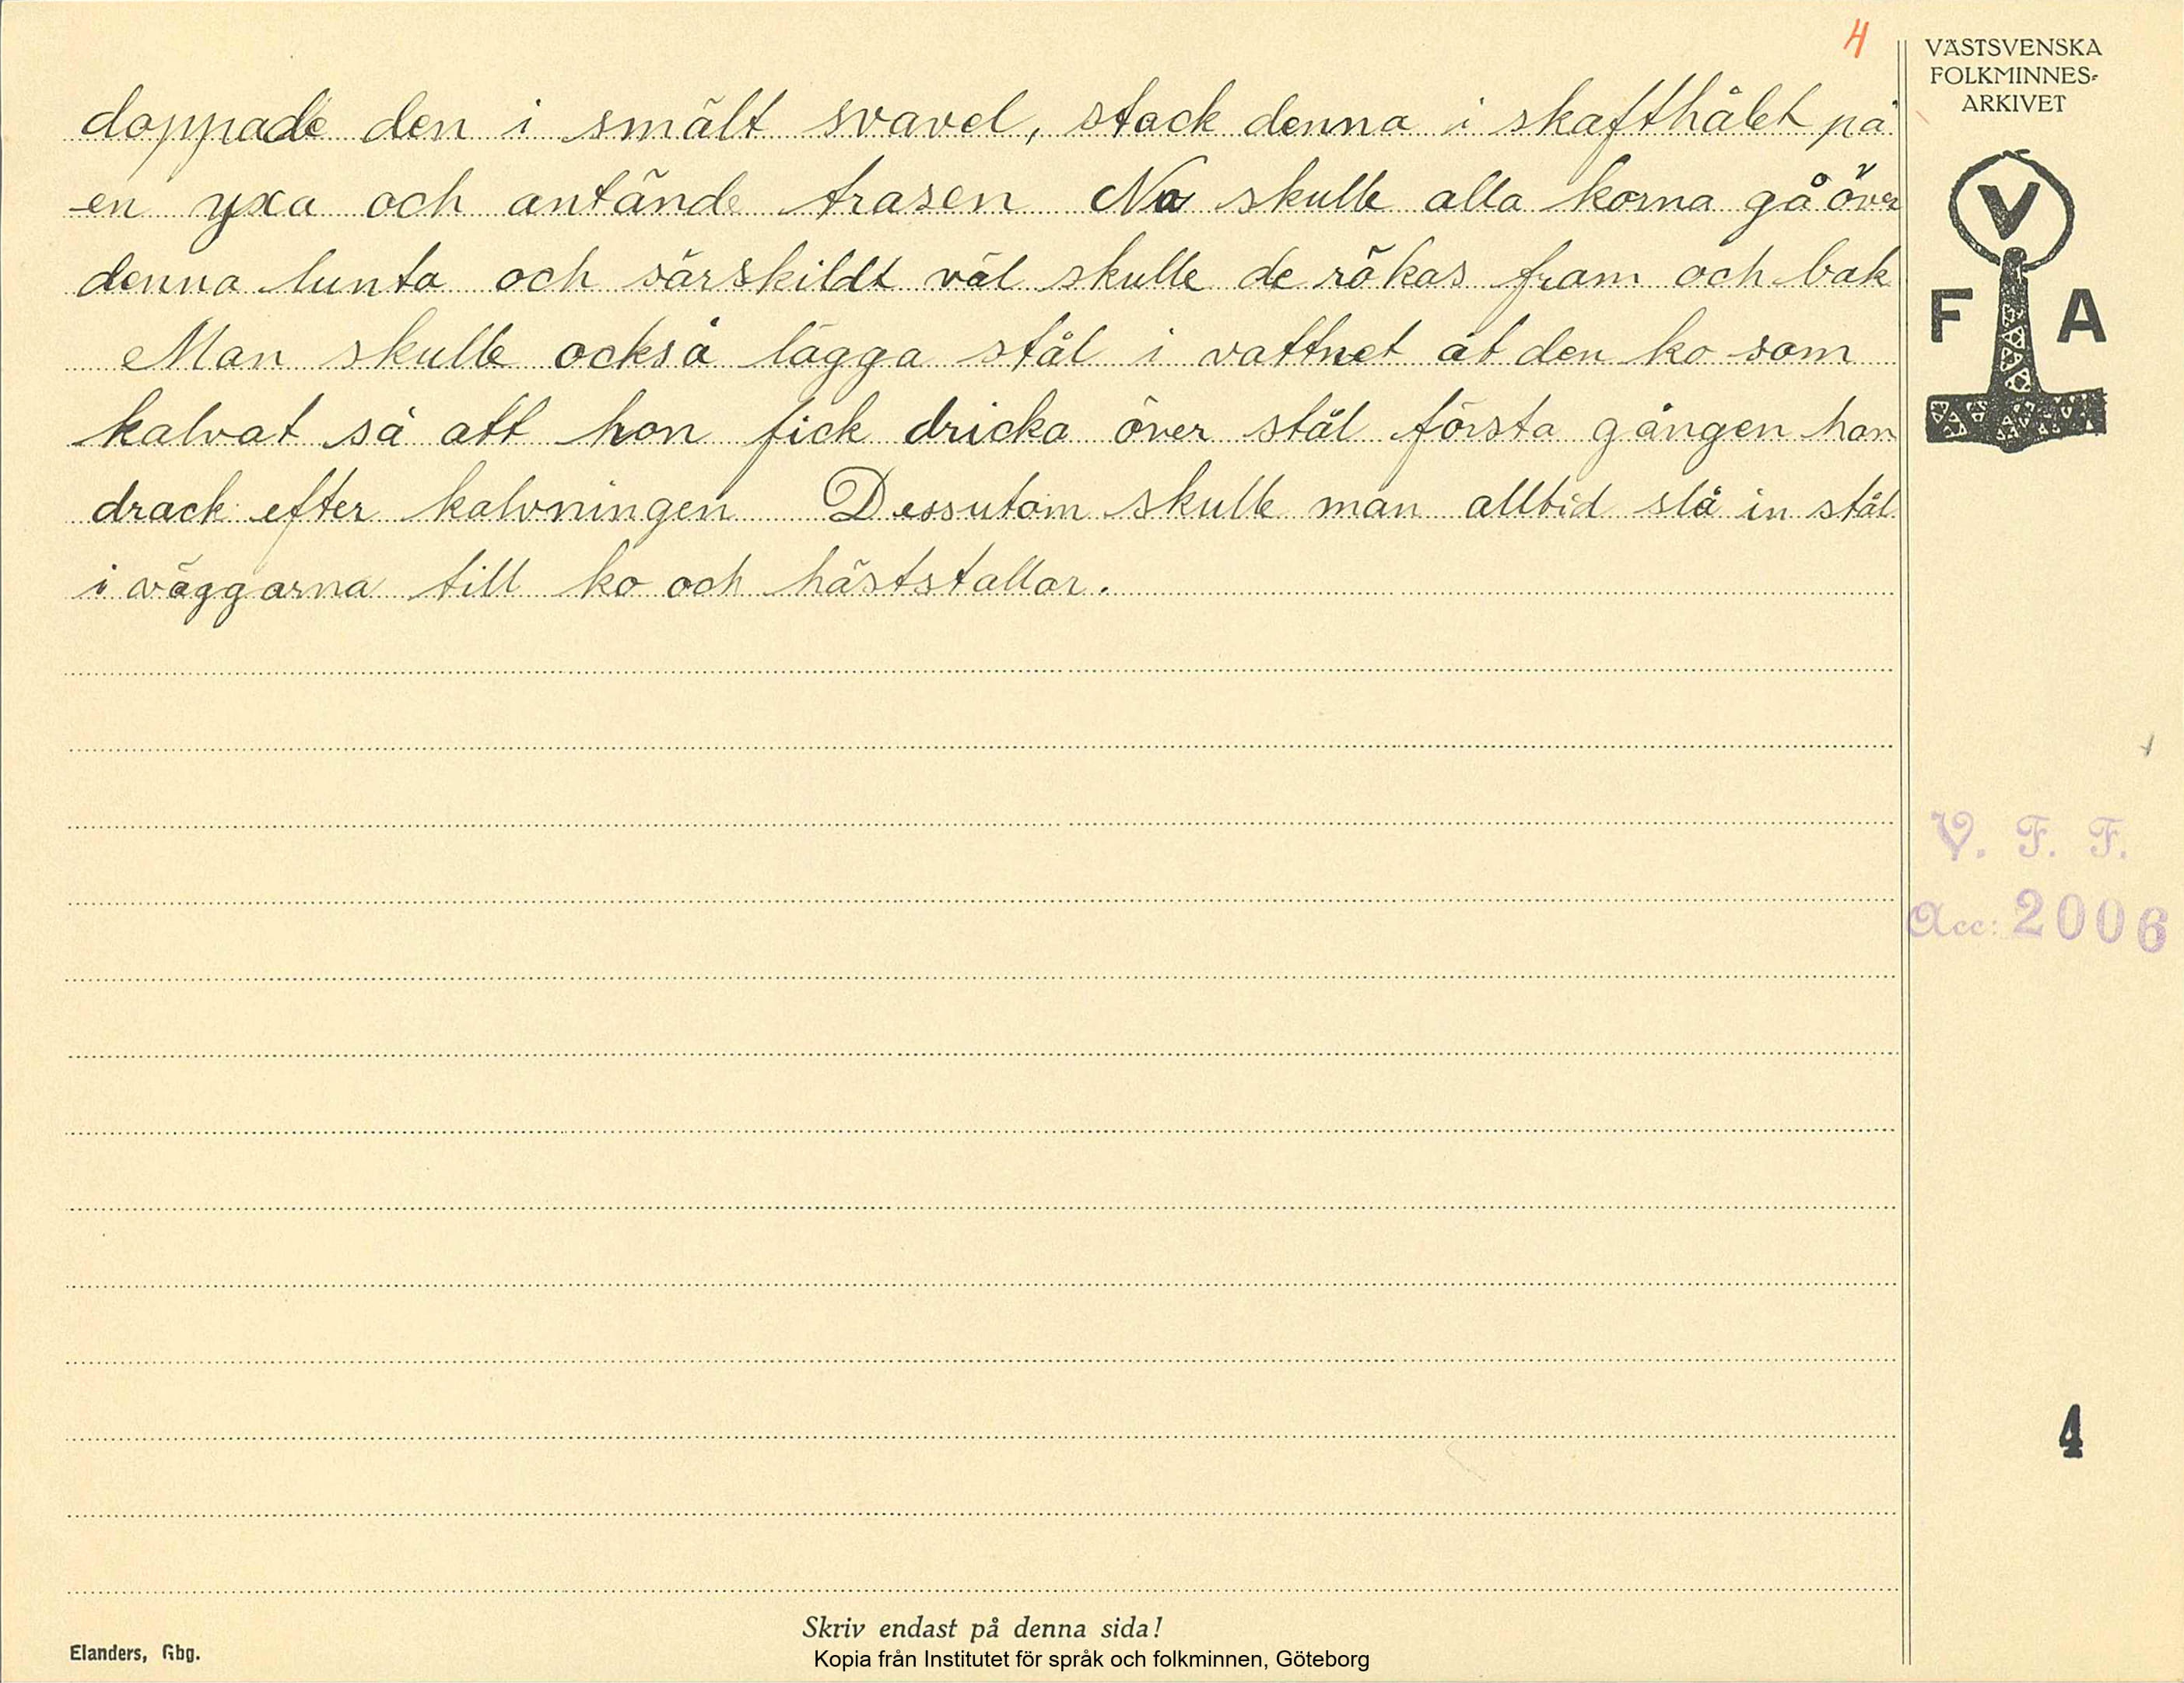 4
VÄSTSVENSKA
FOLKMINNES-
ARKIVET
V
F A
doppade den i smält svavel, stack denna i skafthålet på
en yxa och antände trasen Nu skulle alla korna gå över
denna lunta och särskildt väl skulle de rökas fram och bak
Man skulle också lägga stål i vattnet åt den ko som
kalvat så att hon fick dricka över stål första gången hon
drack efter kalvningen Dessutom skulle man alltid slå in stål
i väggarna till ko och häststallar.
V. F. F.
Acc: 2006
4
Skriv endast på denna sida!
Elanders, Gbg.
Kopia från Institutet för språk och folkminnen, Göteborg